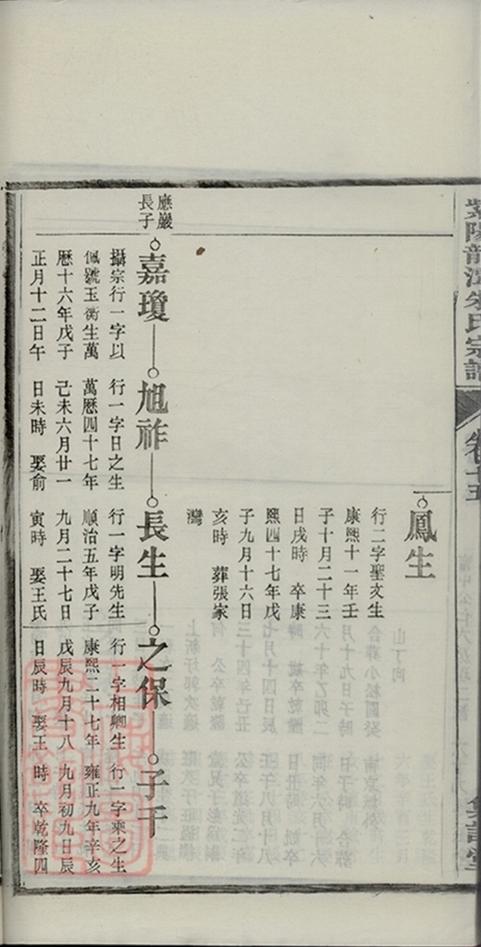 紫陽龍潭朱氏宗譜
卷十五
鳳生
行二字聖文生
康熙十一年壬
子十月二十三
日戌時 卒康
熙四十七年戊
子九月十六日
亥時 葬張家
灣
應嚴
長子
嘉瓊
攝宗行一字以
佩號玉衡生萬
曆十六年戊子
正月十二日午
旭祚
行一字日之生
萬曆四十七年
己未六月廿一
日未時 娶俞
長生
行一字明先生
順治五年戊子
九月二十七日
寅時 娶王氏
之保
行一字相卿生
康熙二十七年
戊辰九月十八
日辰時 娶王
子千
行一字乘之生
雍正九年辛亥
九月初九日辰
時 卒乾隆四